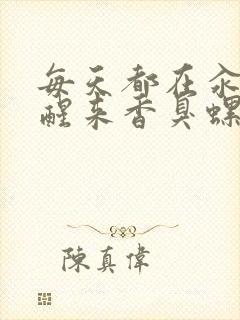 每天都在汆
醒来香臭螺
陳真偉